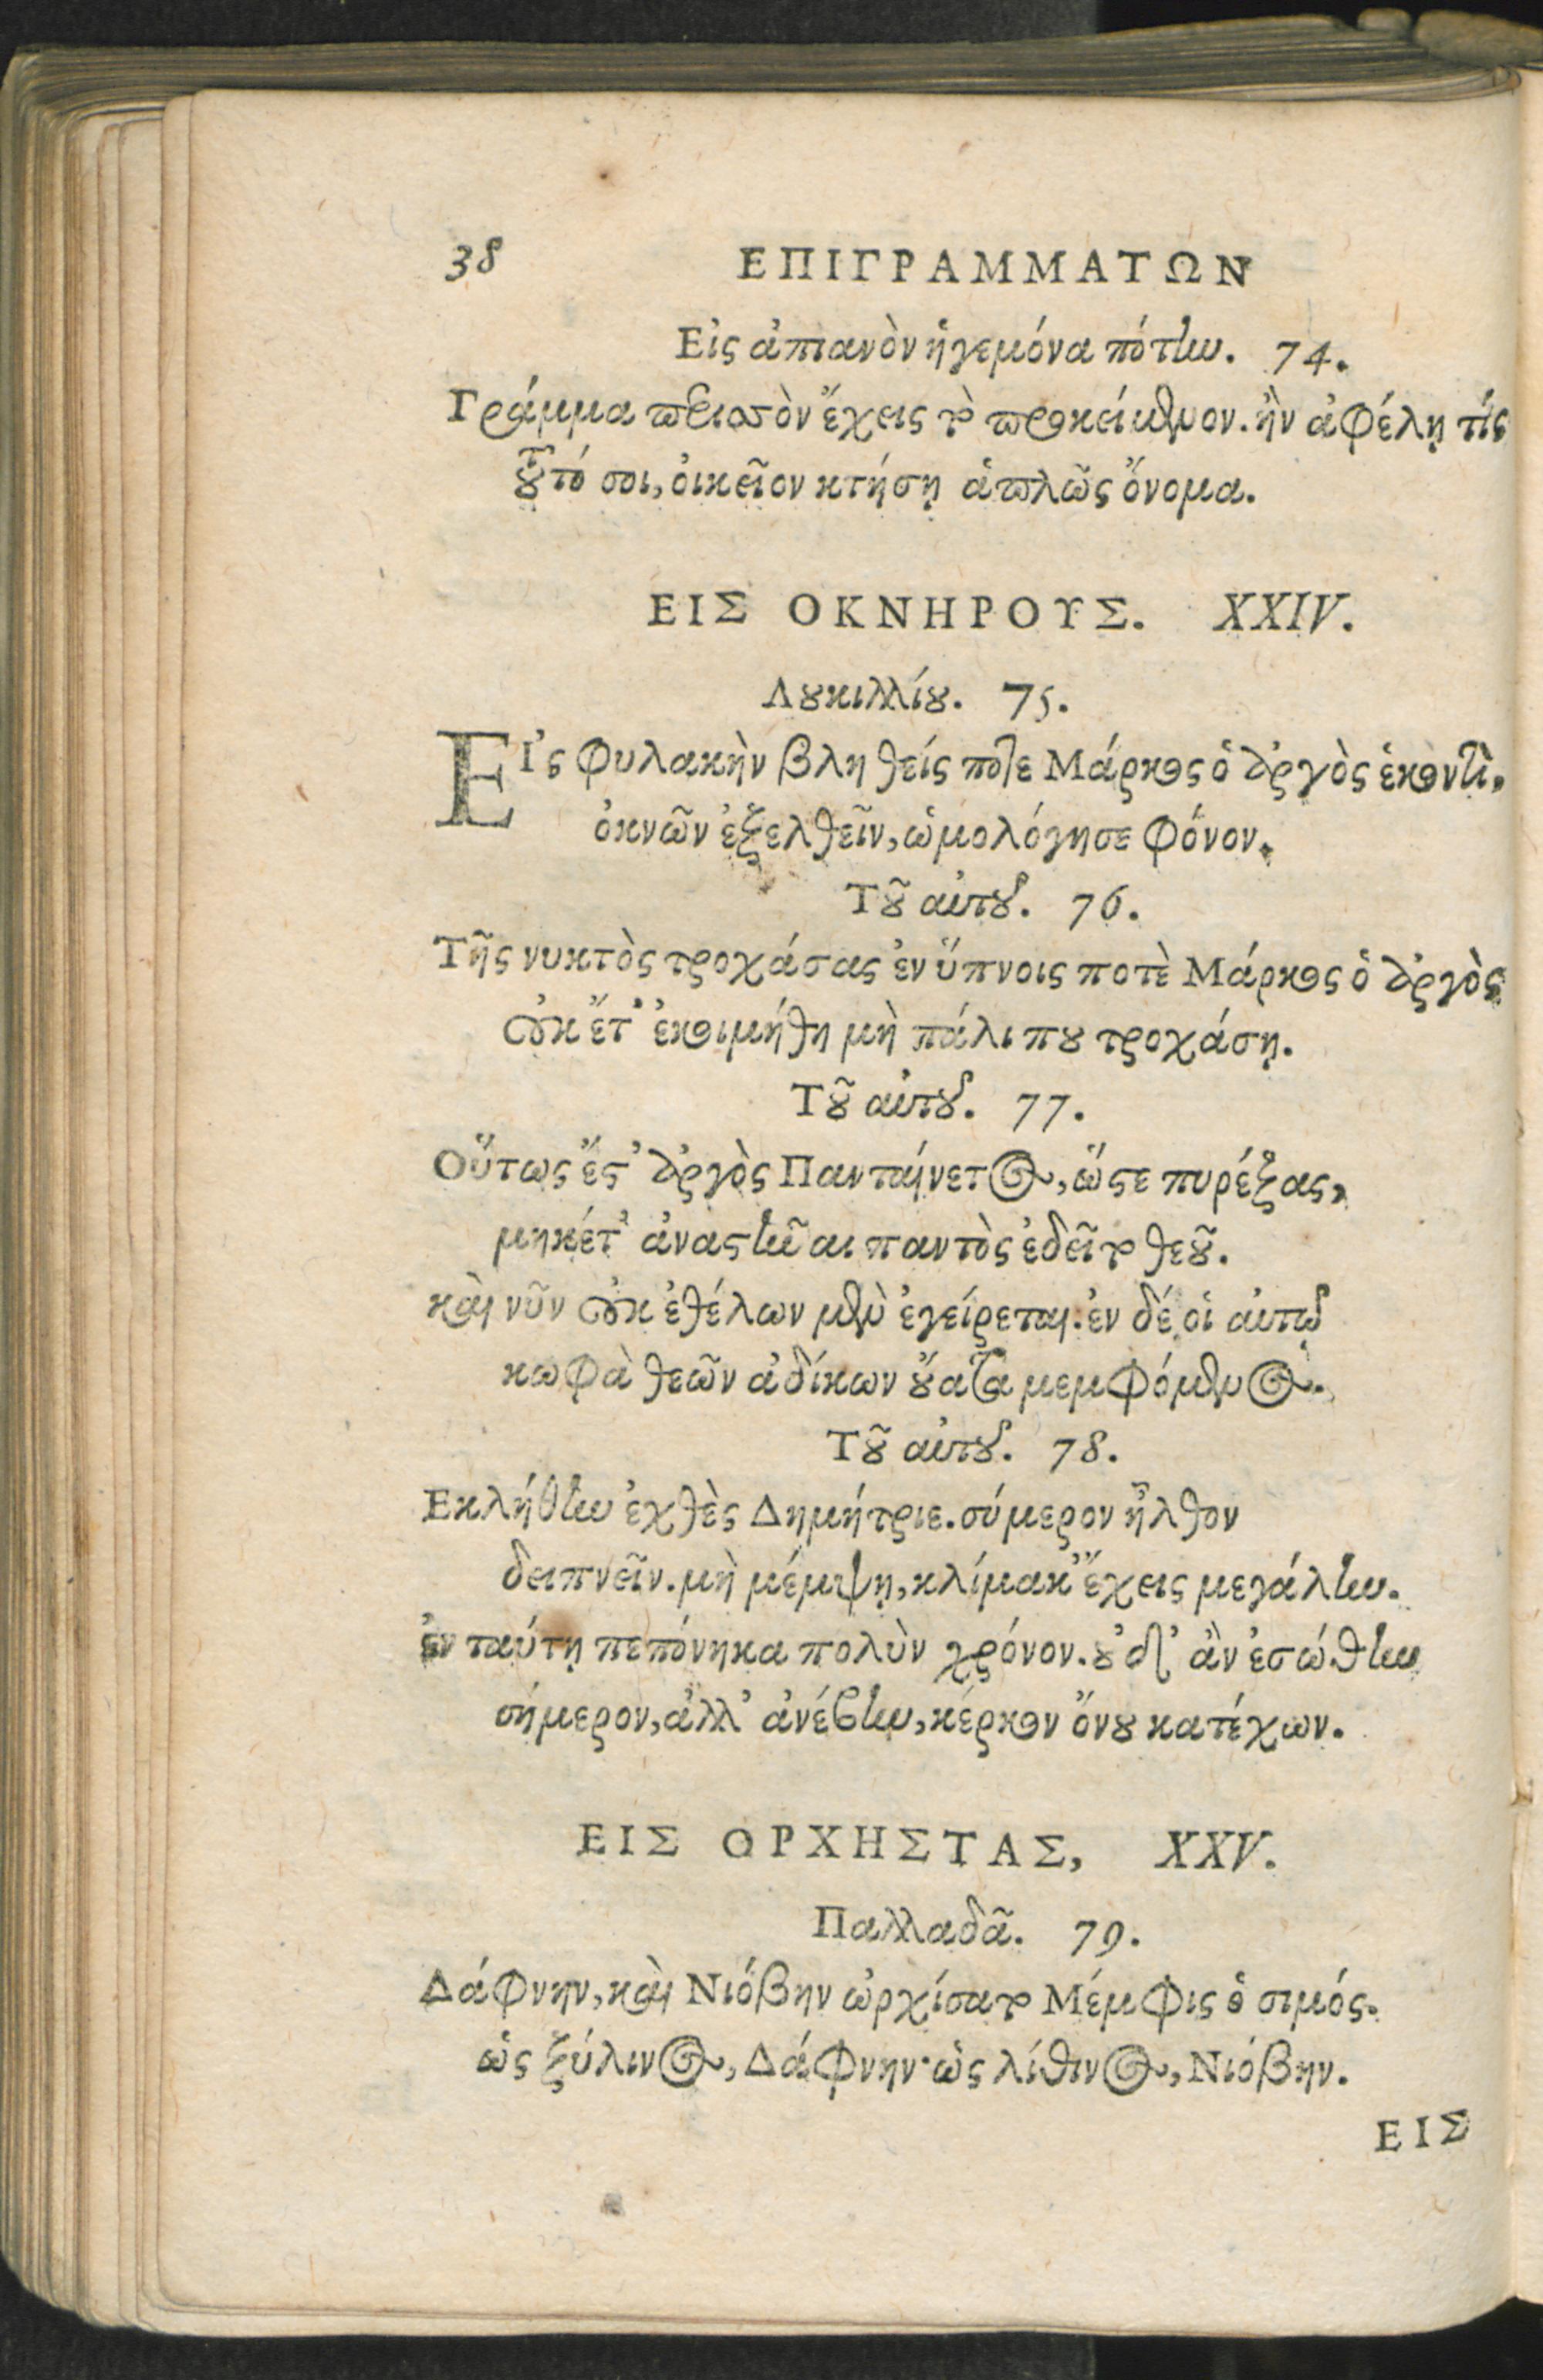 38 ΕΠΙΓΡΑΜΜΑΤΩΝ
Εἰς ἀπιανὸν ἡγεμόνα πότην. 74.
Γράμμα περισσὸν ἔχεις τὸ προκείμενον. ἢν ἀφέλῃ τίς
τοῦτό σοι, οἰκεῖον κτήσῃ ἁπλῶς ὄνομα.
ΕΙΣ ΟΚΝΗΡΟΥΣ. XXIV.
Λουκιλλίου. 75.
Εἰς φυλακὴν βληθείς ποτε Μάρκος ὁ ἀργὸς ἑκοντὶ,
ὀκνῶν ἐξελθεῖν, ὡμολόγησε φόνον.
Τοῦ αὐτοῦ. 76.
Τῆς νυκτὸς τροχάσας ἐν ὕπνοις ποτὲ Μάρκος ὁ ἀργὸς
οὐκ ἔτ' ἐκοιμήθη μὴ πάλι που τροχάσῃ.
Τοῦ αὐτοῦ. 77.
Οὕτως ἔστ' ἀργὸς Πανταίνετος, ὥστε πυρέξας,
μηκέτ' ἀναστῆναι παντὸς ἐδεῖτο θεοῦ.
καὶ νῦν οὐκ ἐθέλων μὲν ἐγείρεται. ἐν δέ οἱ αὐτῷ
κωφὰ θεῶν ἀδίκων οὔατα μεμφόμενος.
Τοῦ αὐτοῦ. 78.
Εκλήθην ἐχθὲς Δημήτριε. σύμερον ἦλθον
δειπνεῖν. μὴ μέμψῃ, κλίμακ' ἔχεις μεγάλην.
ἐν ταύτῃ πεπόνηκα πολὺν χρόνον. οὐδ' ἂν ἐσώθην
σήμερον, ἀλλ' ἀνέβην, κέρκον ὄνου κατέχων.
ΕΙΣ ΟΡΧΗΣΤΑΣ, XXV.
Παλλαδᾶ. 79.
Δάφνην, καὶ Νιόβην ὠρχίσατο Μέμφις ὁ σιμός.
ὡς ξύλινος, Δάφνην· ὡς λίθινος, Νιόβην.
ΕΙΣ